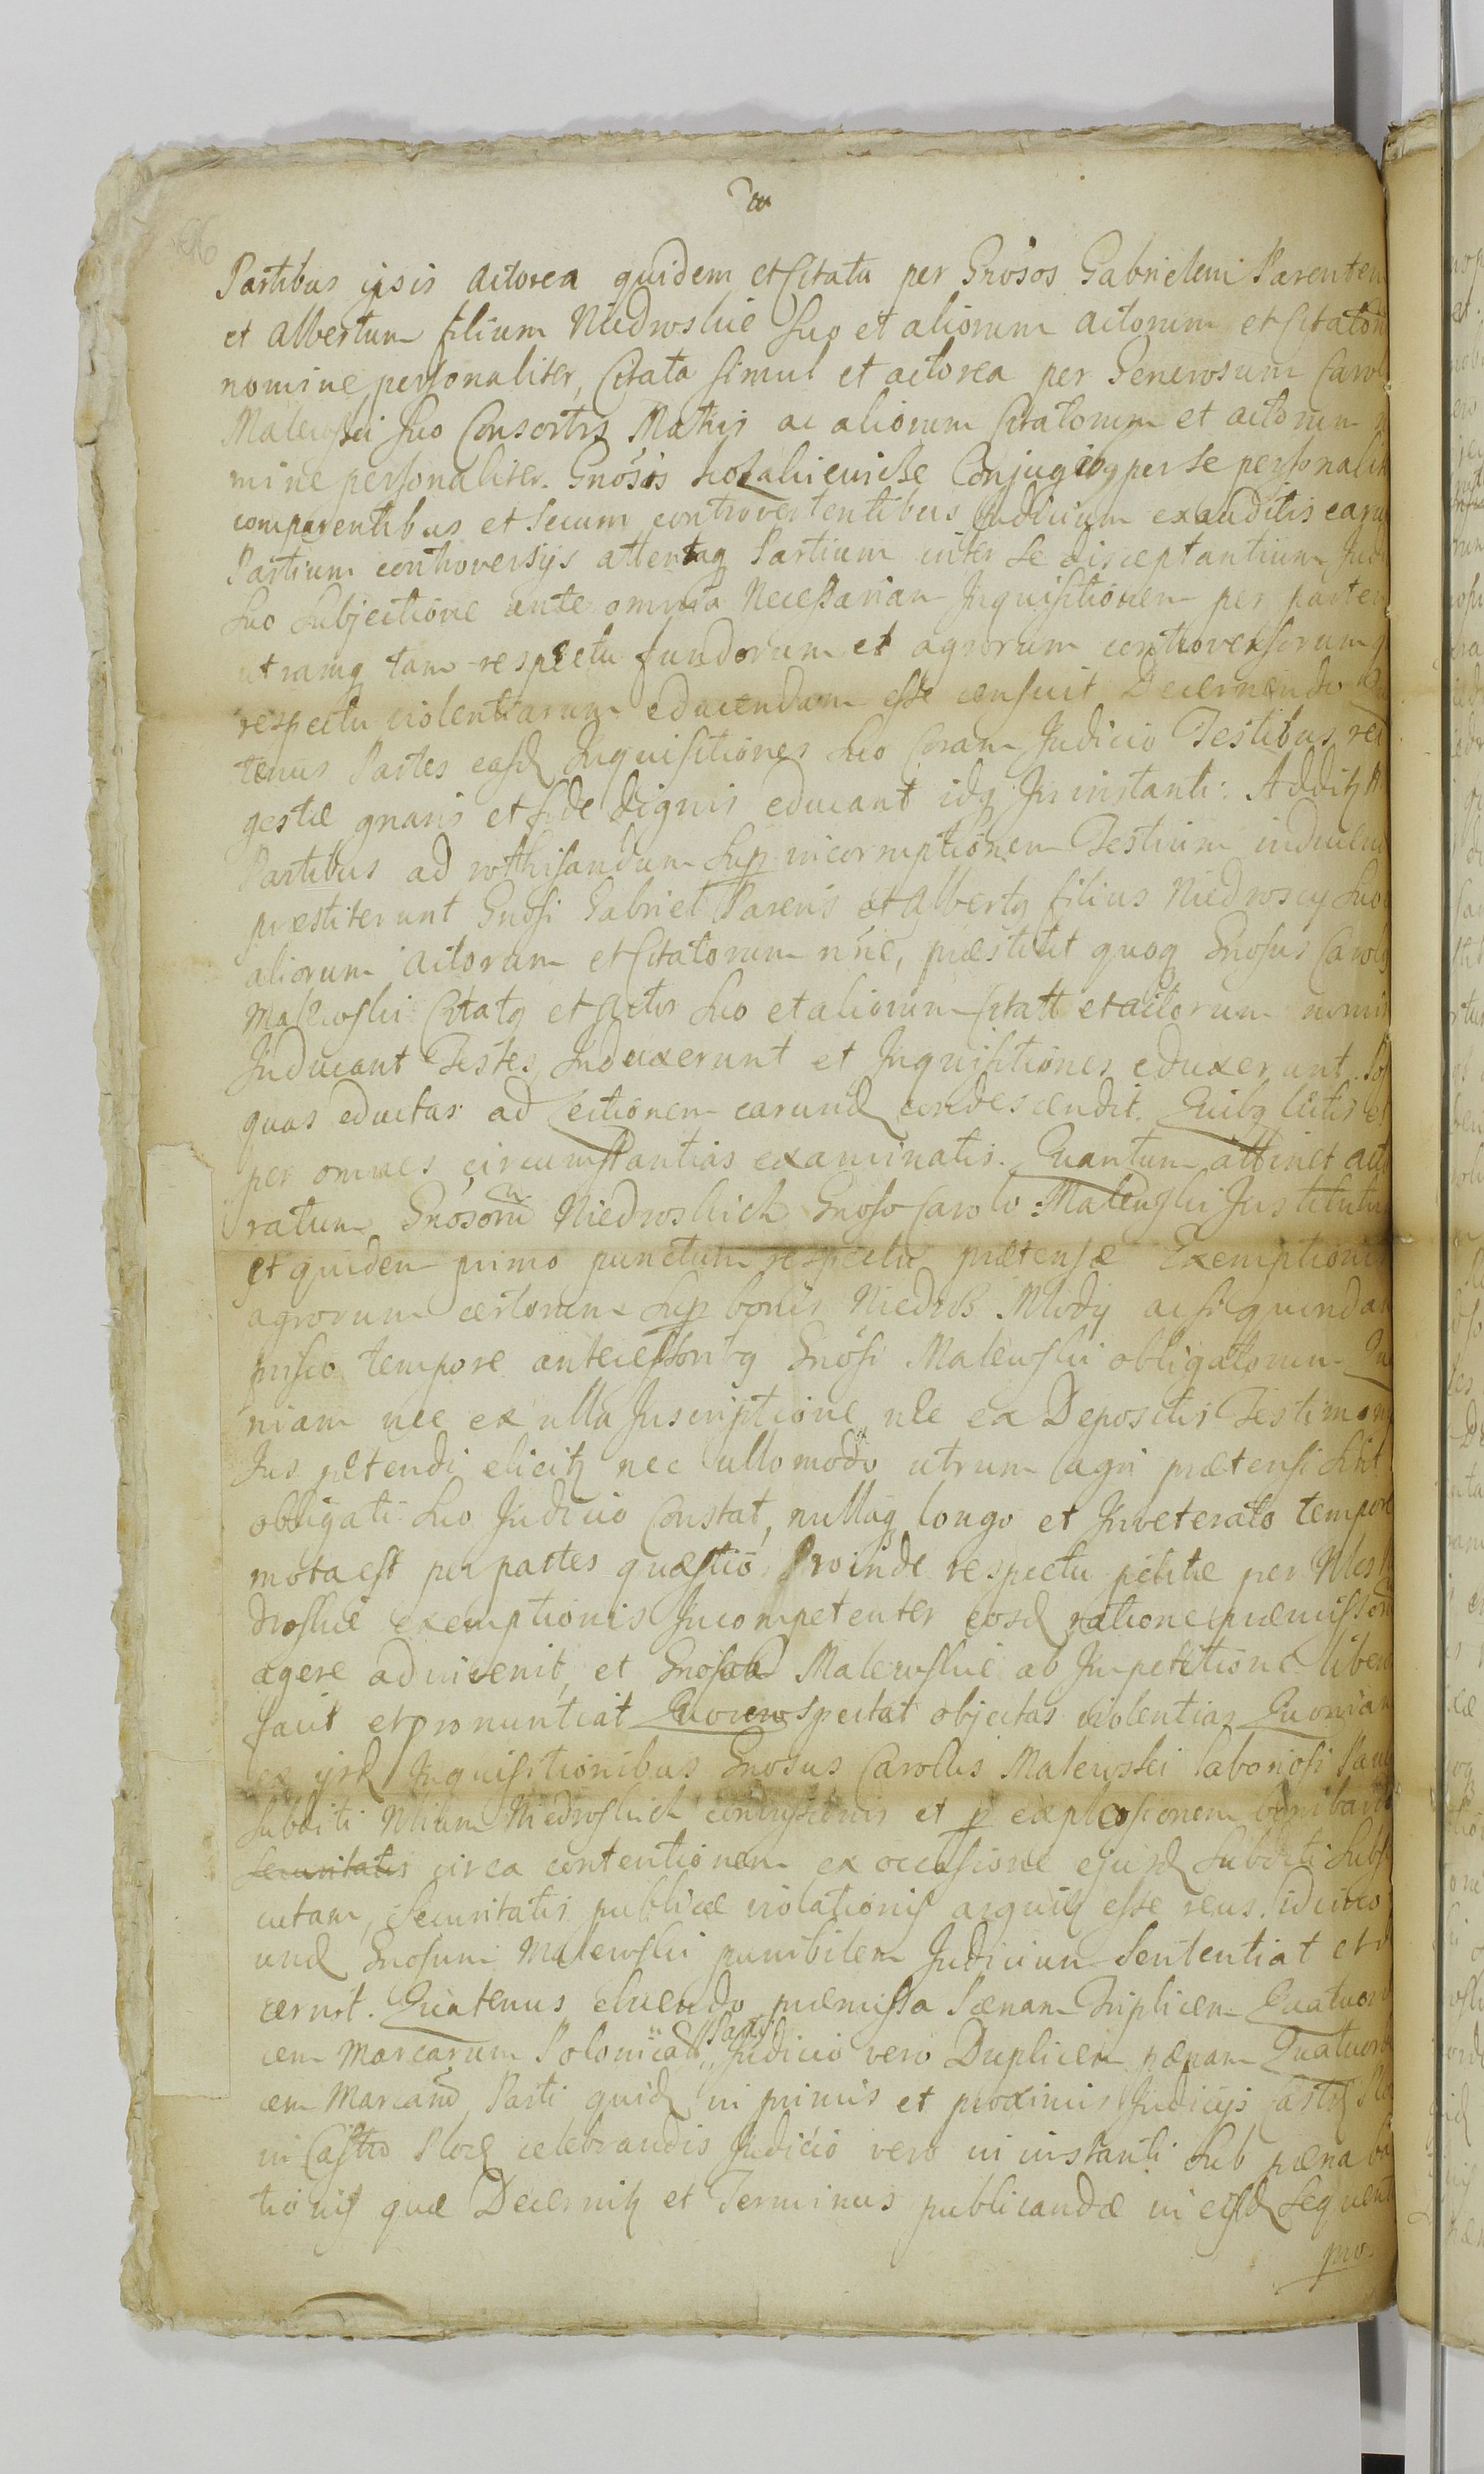 Partibus ipsis actorea quidem et Citata per Gnosos Gabrielem Parentem
et Albertum filium Niedroskie suo et aliorum actorum et Citatorum
nomine personaliter, Citata simul et actorea per Generosum Carol
Malewski suo Consortis Matris ac aliorum Citatorum et actorum
mine personaliter. Gnosis Conjugibq per se personalit
comparentibus et secum controvertentibus Judicium exauditis earu
Partium controversijs attentaq Partium inter se disceptantium Jud
suo subjectione ante omnia Necessariam Inquisitionem per partem
utramq tam respectu fundorum et agrorum controversorum q
respectu violentiarum educendam esse censuit Decernendo
tenus Partes easd Inquisitiones suo Coram Judicio Testibus rei
gestæ gnaris et fide dignis educant idq In instanti. Additz
Partibus ad rotthisandum sup incorruptionem Testium inducen
præstiterunt Gnosi Gabriel Parens et Albertq filius Niedroscy suo
aliorum actorum et Citatorum nne, præstitit quoq Gnosus Carolq
Malewski Citatq et Actor suo et aliorum Citatt et actorum nomin
Inducant Testes, Induxerunt et Inquisitiones eduxerunt.
quas eductas ad lectionem earund condescendit. Quibq lectis et
per omnes circumstantias examinatis. Quantum attinet acto
ratum Gnosorum Niedroskich Gnoso Carolo Malewski Institutu
et quidem primo punctum respectu prætensæ Exemptionis
agrorum certorum sup bonis Niedroß Młody ac si quondam
prisco tempore antecessoribq Gnosi Malewski obligatorum
niam nec ex ulla Inscriptione nec ex Depositis Testimon
Jus petendi elicitz nec ullo modo utrum agri prætensi sint
obligati suo Judicio Constat, nullaq longo et Inveterato tempore
mota est per partes quæstio, Proinde respectu petitæ per
droskie exemptionis Incompetenter eosd ratione præmissorum
agere adinvenit, et Malewskie ab Impetitione liber
facit et pronuntiat Quo vero spectat objectas violentias Quoniam
ex ijsd Inquisitionibus Gnosus Carolus Malewski laboriosi Pauli
subditi Niedroskich contusionis et p explosionem bombardæ
securitatis circa contentionem ex occasione ejusd subditi subse
cutam, securitatis publicæ violationis arguitz esse reus. idcirco
und Gnosum Malewski punibilem Judicium sententiat et
cernit. Quatenus eluendo præmissa Pænam Triplicem Quatuord
cem Marcarum Polonicall, Parti Judicio vero Duplicem pænam Quatuord
cem Marcarum Parti quid in primis et proximis Judicijs
in Castro celebrandis Judicio vero in instanti sub pæna ba
tionis quæ Decernitz et Terminus publicandæ in eisd sequent
pro-